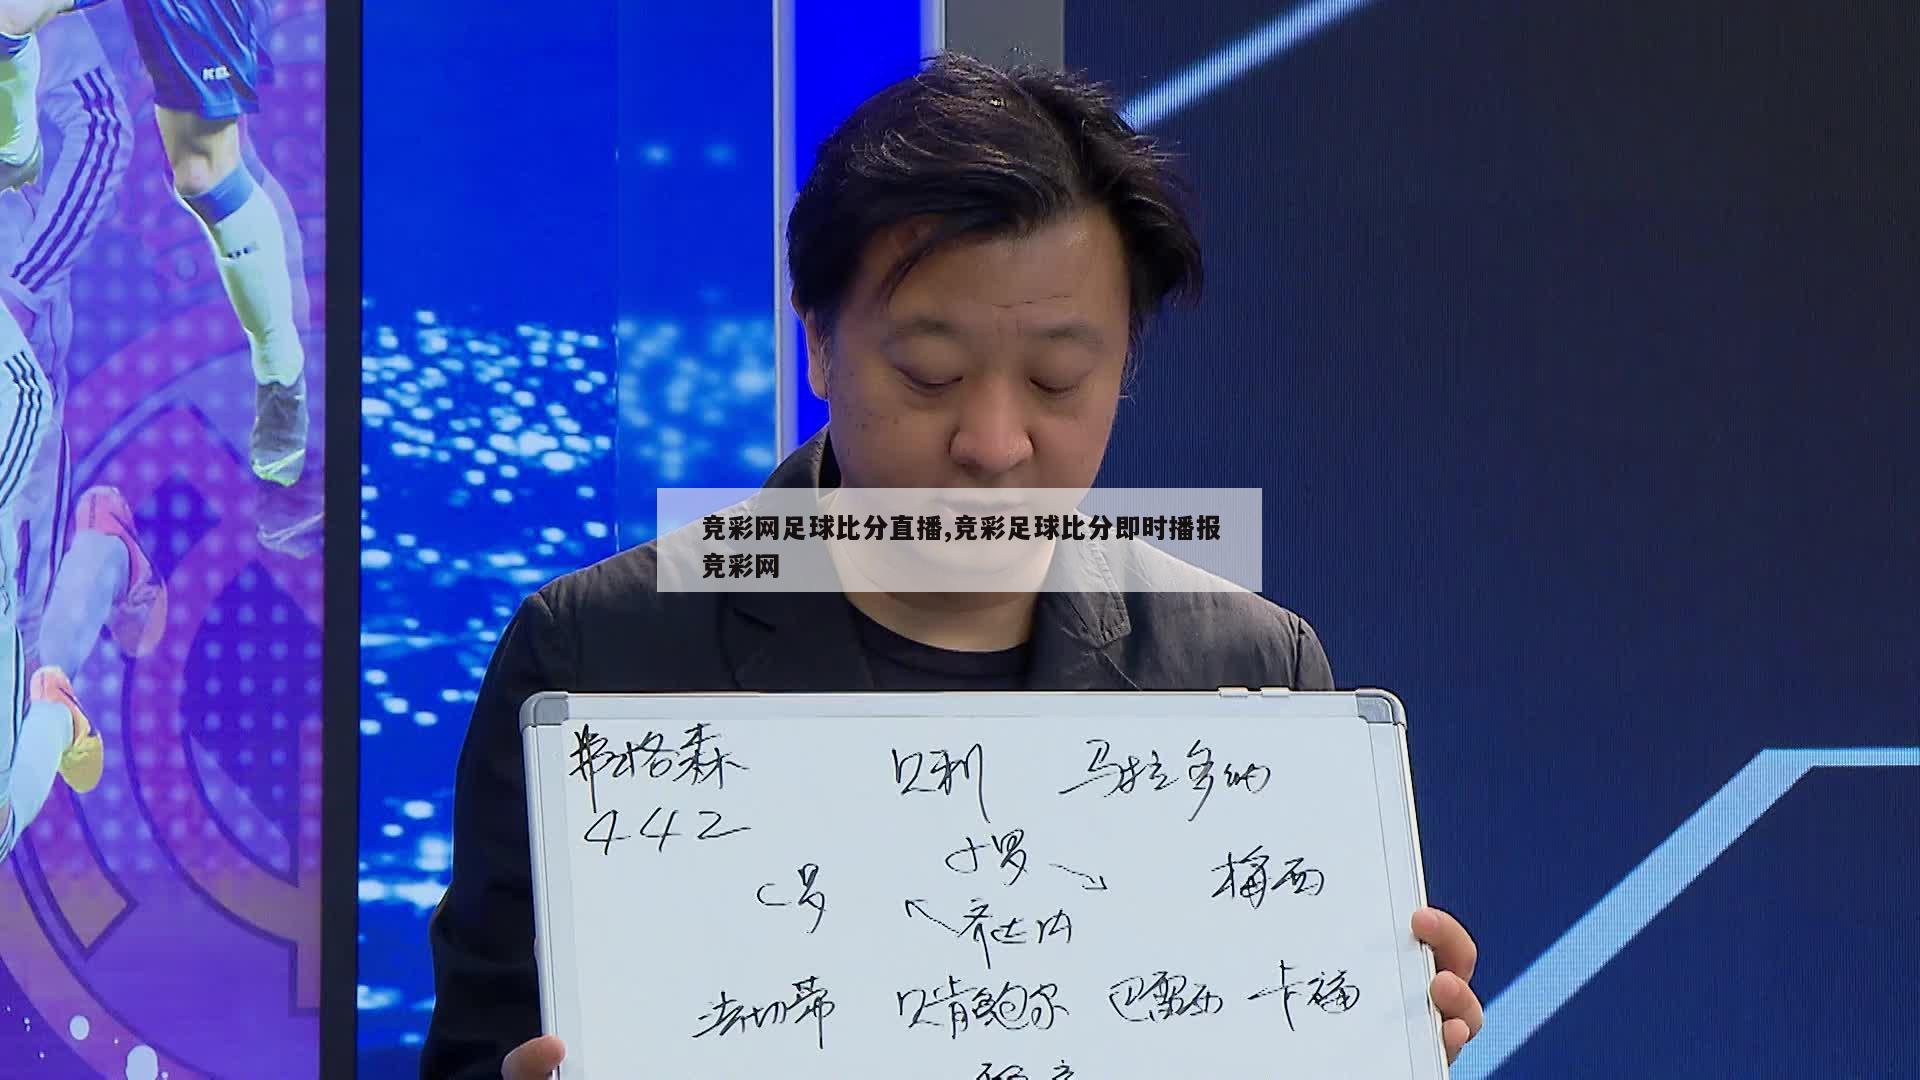 竞彩网足球比分直播,竞彩足球比分即时播报
竞彩网
弗格森 贝利 马拉多纳
442
小罗
C罗 梅西
齐达内
法切蒂 贝肯鲍尔 巴雷西 卡福